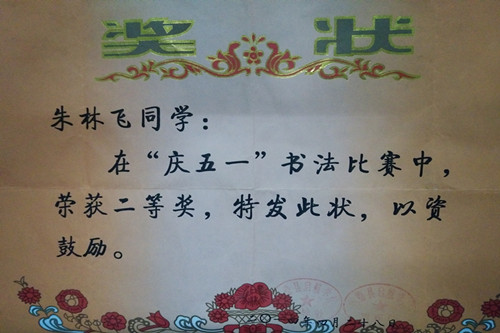 奖状
朱林飞同学：
在“庆五一”书法比赛中，
荣获二等奖，特发此状，以资
鼓励。